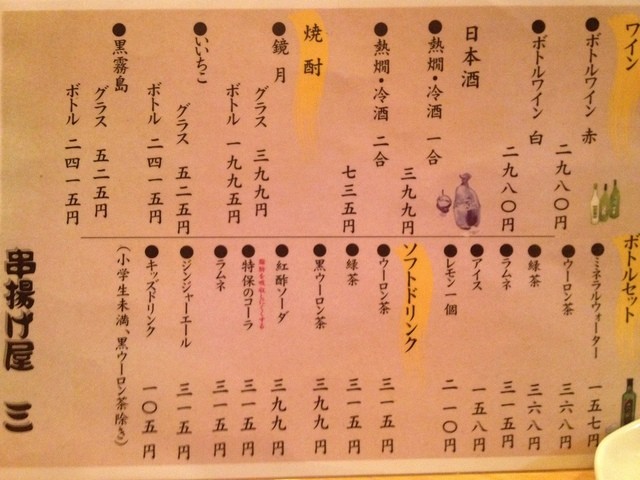 ワイン
●ボトルワイン 赤
二九八〇円
●ボトルワイン 白
二九八〇円
日本酒
●熱燗・冷酒 一合
三九九円
●熱燗・冷酒 二合
七三五円
焼酎
●鏡月
グラス 三九九円
ボトル 一九九五円
●いいちこ
グラス 五二五円
ボトル 二四一五円
●黒霧島
グラス 五二五円
ボトル 二四一五円
ボトルセット
●ミネラルウォーター 一五七円
●ウーロン茶 三六八円
●緑茶 三六八円
●ラムネ 三一五円
●アイス 一五八円
●レモン一個 二一〇円
ソフトドリンク
●ウーロン茶 三一五円
●緑茶 三一五円
●黒ウーロン茶 三九九円
●紅酢ソーダ 三九九円
●特保のコーラ 三一五円
●ラムネ 三一五円
●ジンジャーエール 三一五円
●キッズドリンク 一〇五円
(小学生未満、黒ウーロン茶除き)
串揚げ屋 三